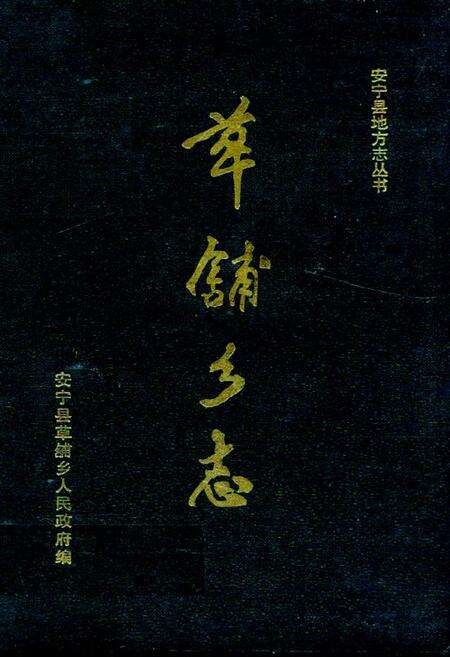 安宁县地方志丛书
草舖乡志
安宁县草舖乡人民政府编